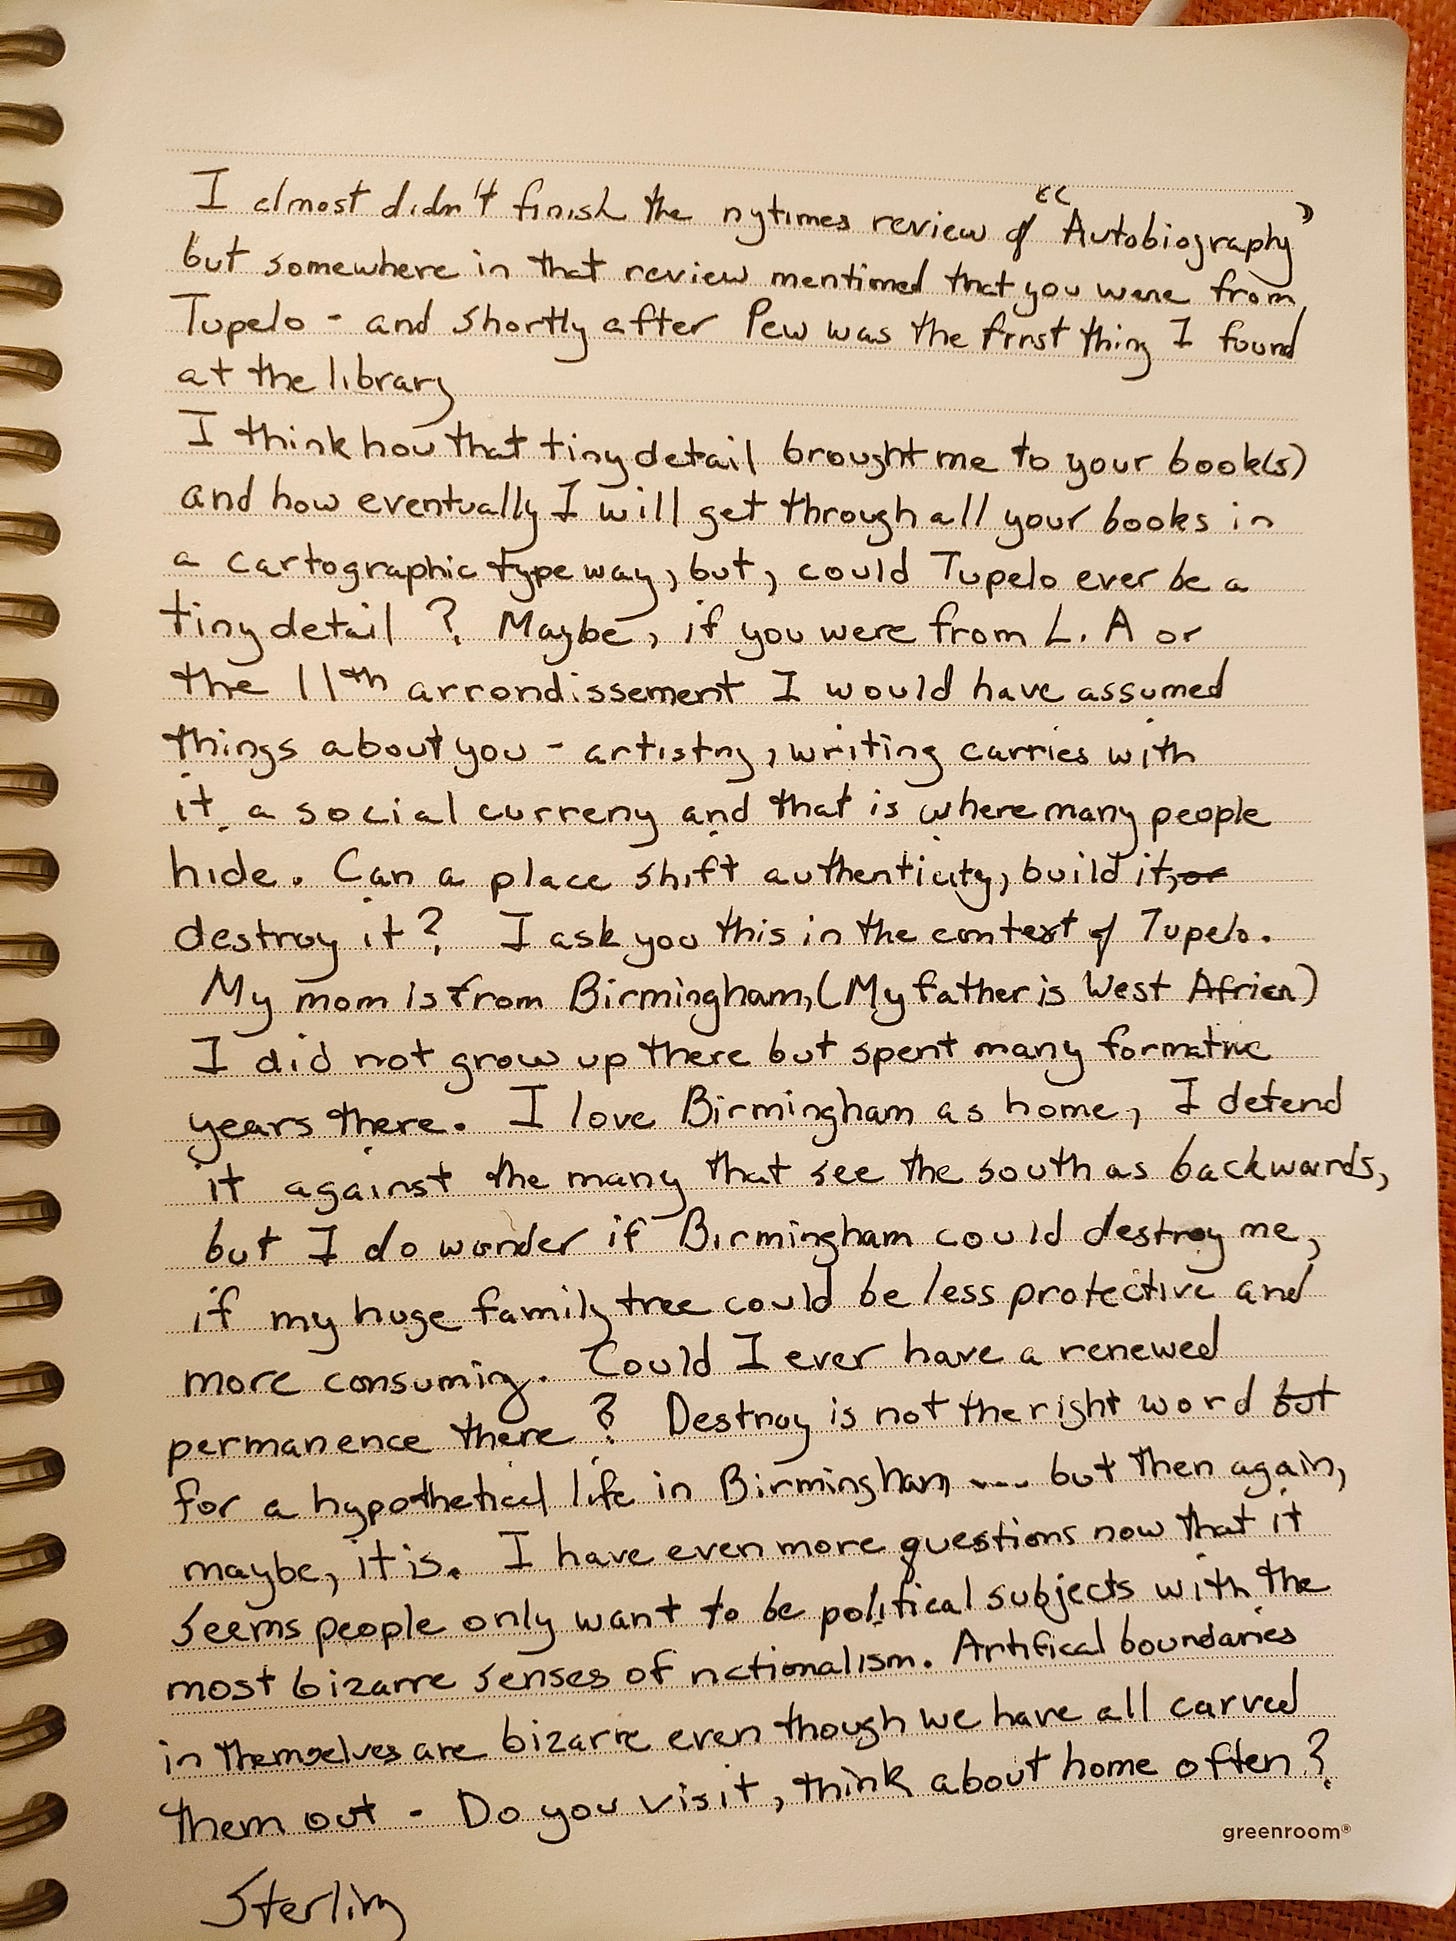 I almost didn't finish the nytimes review of "Autobiography"
but somewhere in that review mentioned that you were from
Tupelo - and shortly after Pew was the first thing I found
at the library
I think how that tiny detail brought me to your book(s)
and how eventually I will get through all your books in
a cartographic type way, but, could Tupelo ever be a
tiny detail? Maybe, if you were from L.A or
the 11th arrondissement I would have assumed
things about you - artistry, writing carries with
it a social curreny and that is where many people
hide. Can a place shift authenticity, build it, or
destroy it? I ask you this in the context of Tupelo.
My mom is from Birmingham, (My father is West African)
I did not grow up there but spent many formative
years there. I love Birmingham as home, I defend
it against the many that see the south as backwards,
but I do wonder if Birmingham could destroy me,
if my huge family tree could be less protective and
more consuming. Could I ever have a renewed
permanence there? Destroy is not the right word but
for a hypothetical life in Birmingham .... but then again,
maybe, it is. I have even more questions now that it
seems people only want to be political subjects with the
most bizarre senses of nationalism. Artifical boundaries
in themselves are bizarre even though we have all carved
them out - Do you visit, think about home often?
greenroom®
Sterling